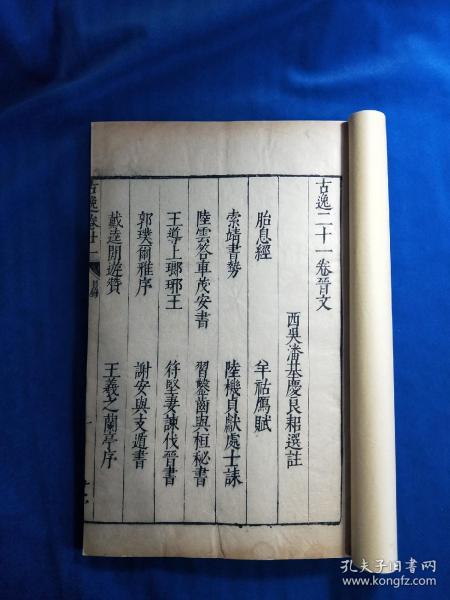 古逸二十一卷晉文
西吳潘基慶良耜選註
胎息經
羊祜鴈賦
索靖書勢
陸機貞獻處士誄
陸雲答車茂安書
習鑿齒與桓秘書
王導上瑯琊王
苻堅妻諫伐晉書
郭璞爾雅序
謝安與支遁書
戴逵閒遊贊
王羲之蘭亭序
古逸卷廿一
孔夫子旧书网
www.kongfz.com